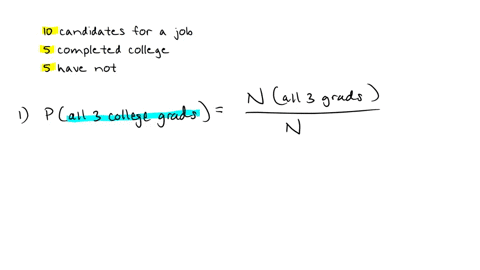 10 candidates for a job
5 completed college
5 have not
1) P(all 3 college grads) = N(all 3 grads) / N